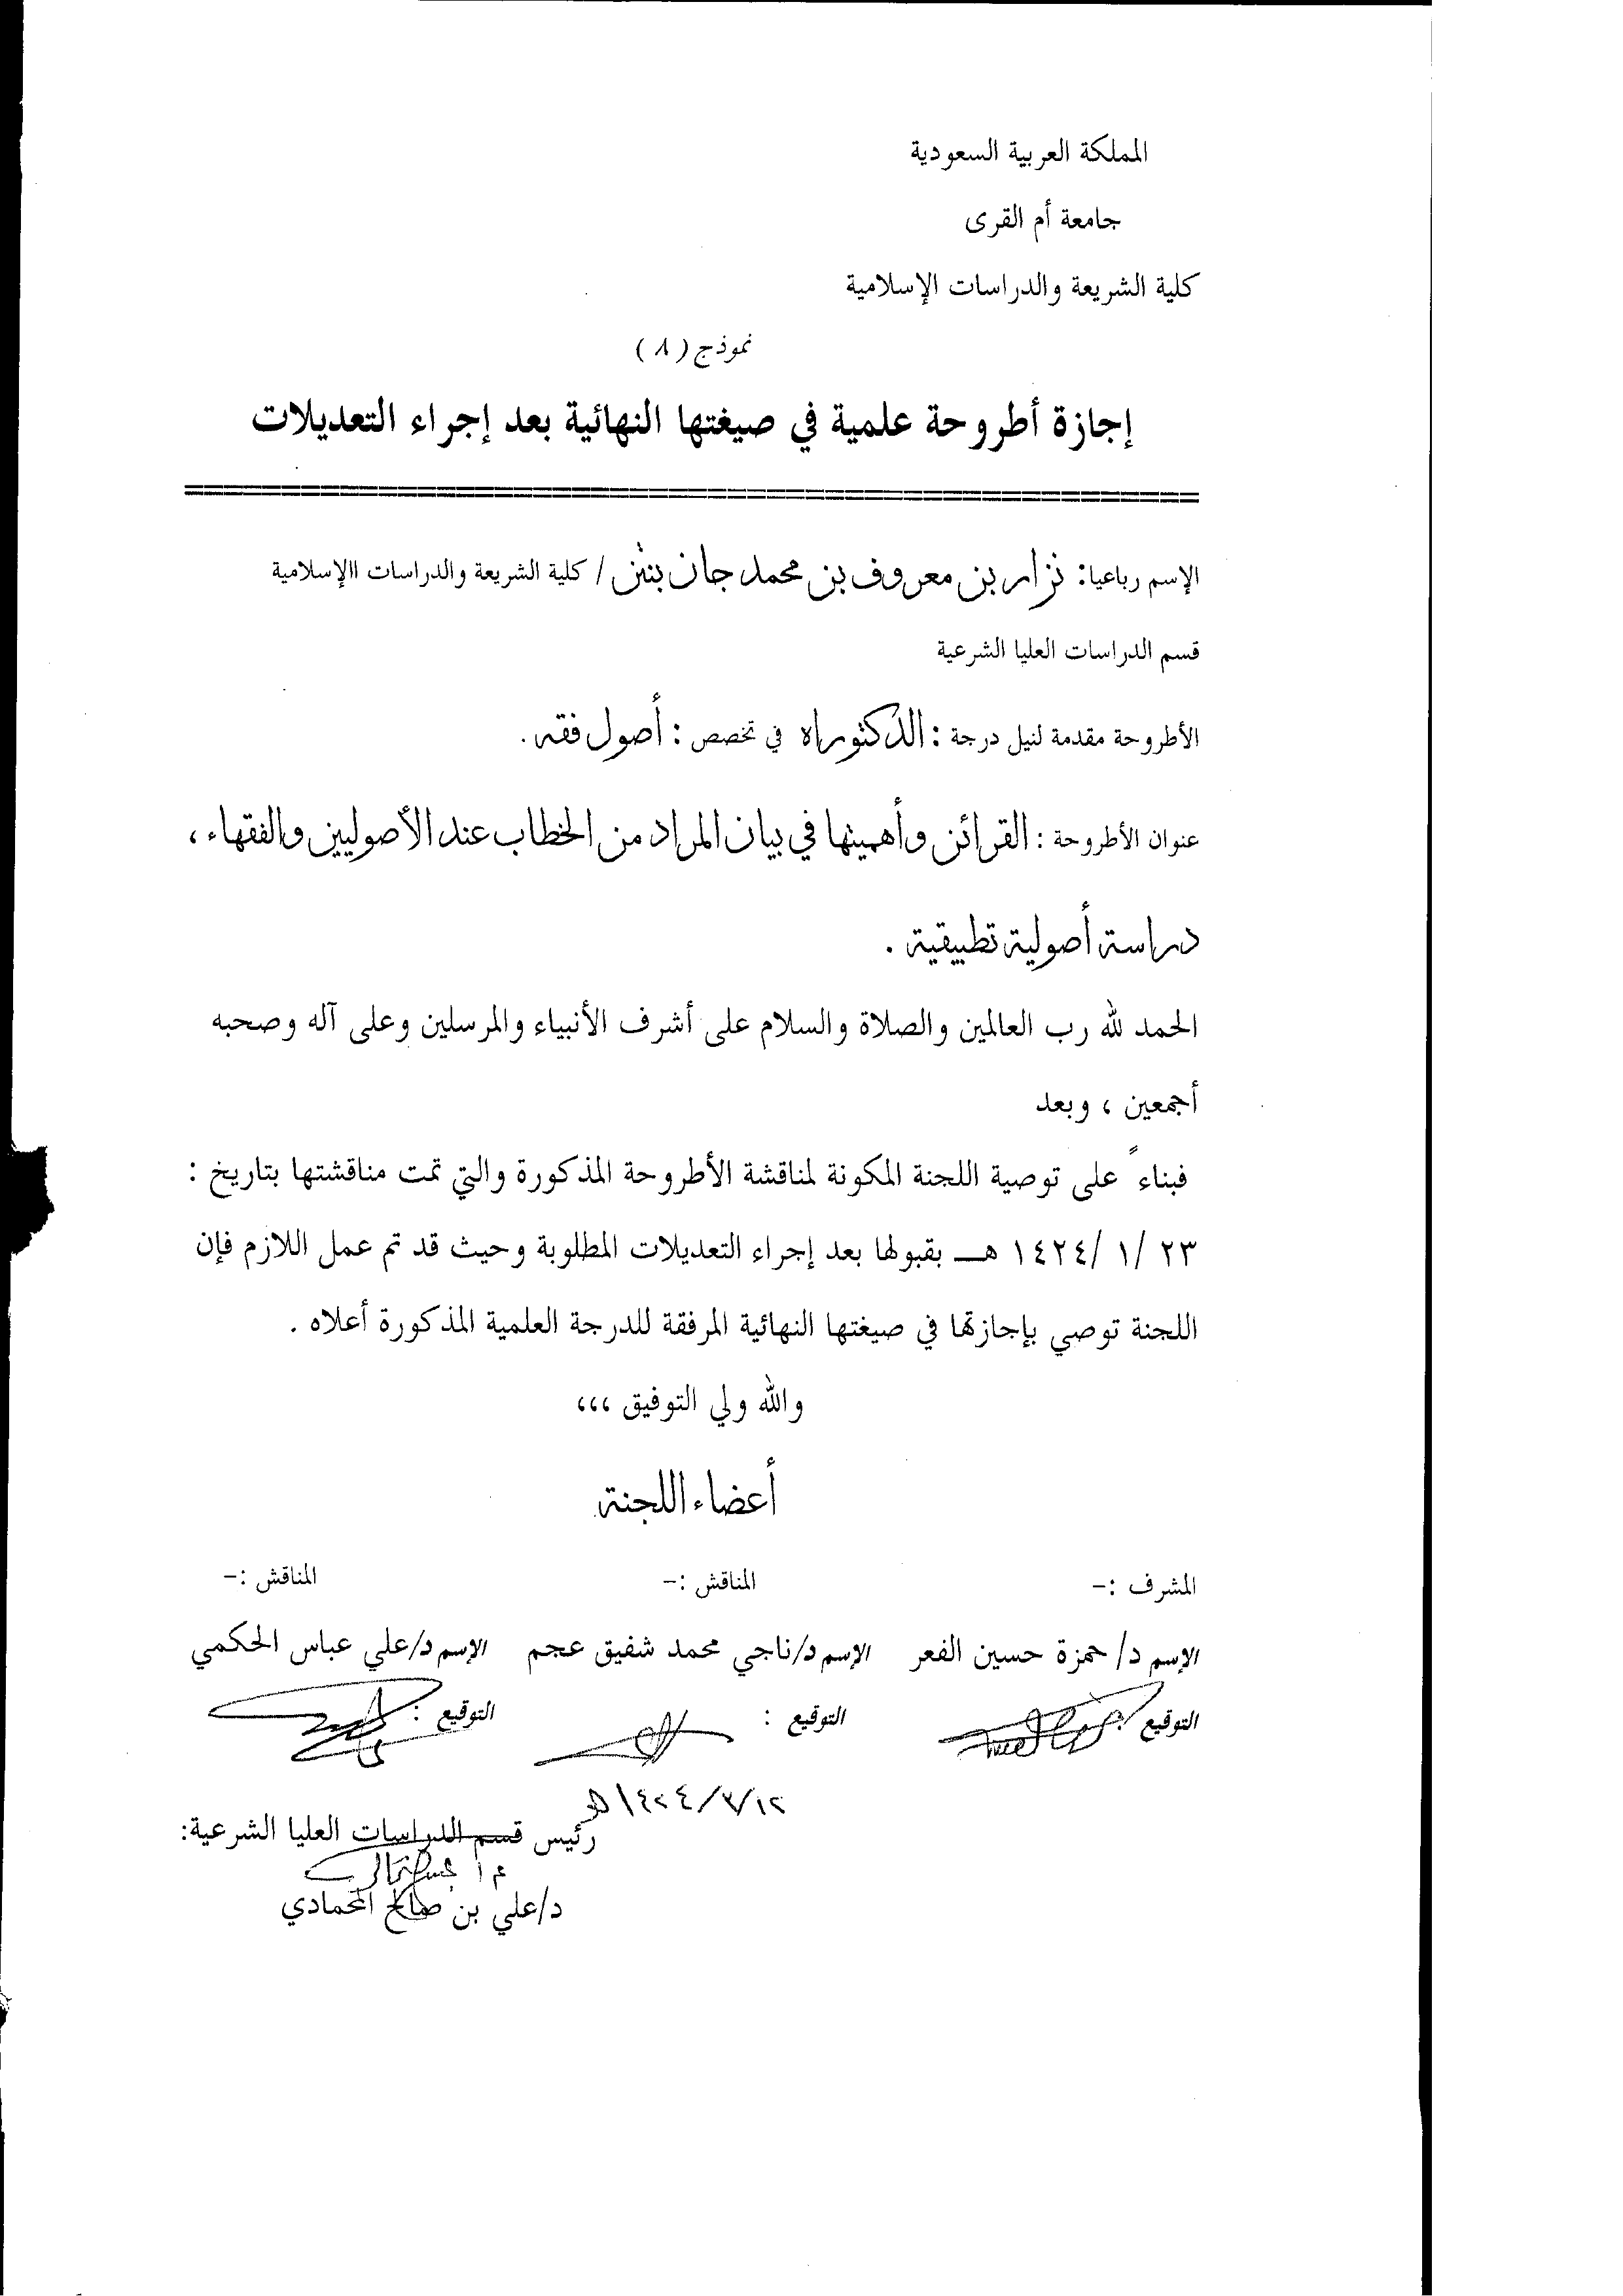 المملكة العربية السعودية
جامعة أم القرى
كلية الشريعة والدراسات الإسلامية
نموذج ( ٨ )
إجازة أطروحة علمية في صيغتها النهائية بعد إجراء التعديلات
الإسم رباعيا: نزار بن معروف بن محمد جان بنتن / كلية الشريعة والدراسات االإسلامية
قسم الدراسات العليا الشرعية
الأطروحة مقدمة لنيل درجة : الدكتوراه في تخصص : أصول فقه .
عنوان الأطروحة : القرائن وأهميتها في بيان المراد من الخطاب عند الأصوليين والفقهاء ،
دراسة أصولية تطبيقية .
الحمد لله رب العالمين والصلاة والسلام على أشرف الأنبياء والمرسلين وعلى آله وصحبه
أجمعين ، وبعد
فبناءً على توصية اللجنة المكونة لمناقشة الأطروحة المذكورة والتي تمت مناقشتها بتاريخ :
٢٣ /١ /١٤٢٤ هـــ بقبولها بعد إجراء التعديلات المطلوبة وحيث قد تم عمل اللازم فإن
اللجنة توصي بإجازتها في صيغتها النهائية المرفقة للدرجة العلمية المذكورة أعلاه .
والله ولي التوفيق ،،،
أعضاء اللجنة
المشرف :- المناقش :- المناقش :-
الإسم د/ حمزة حسين الفعر الإسم د/ناجي محمد شفيق عجم الإسم د/علي عباس الحكمي
التوقيع : التوقيع : التوقيع :
١٤٢٤/٣/١٢هـ
رئيس قسم الدراسات العليا الشرعية:
د/علي بن صالح المحمادي